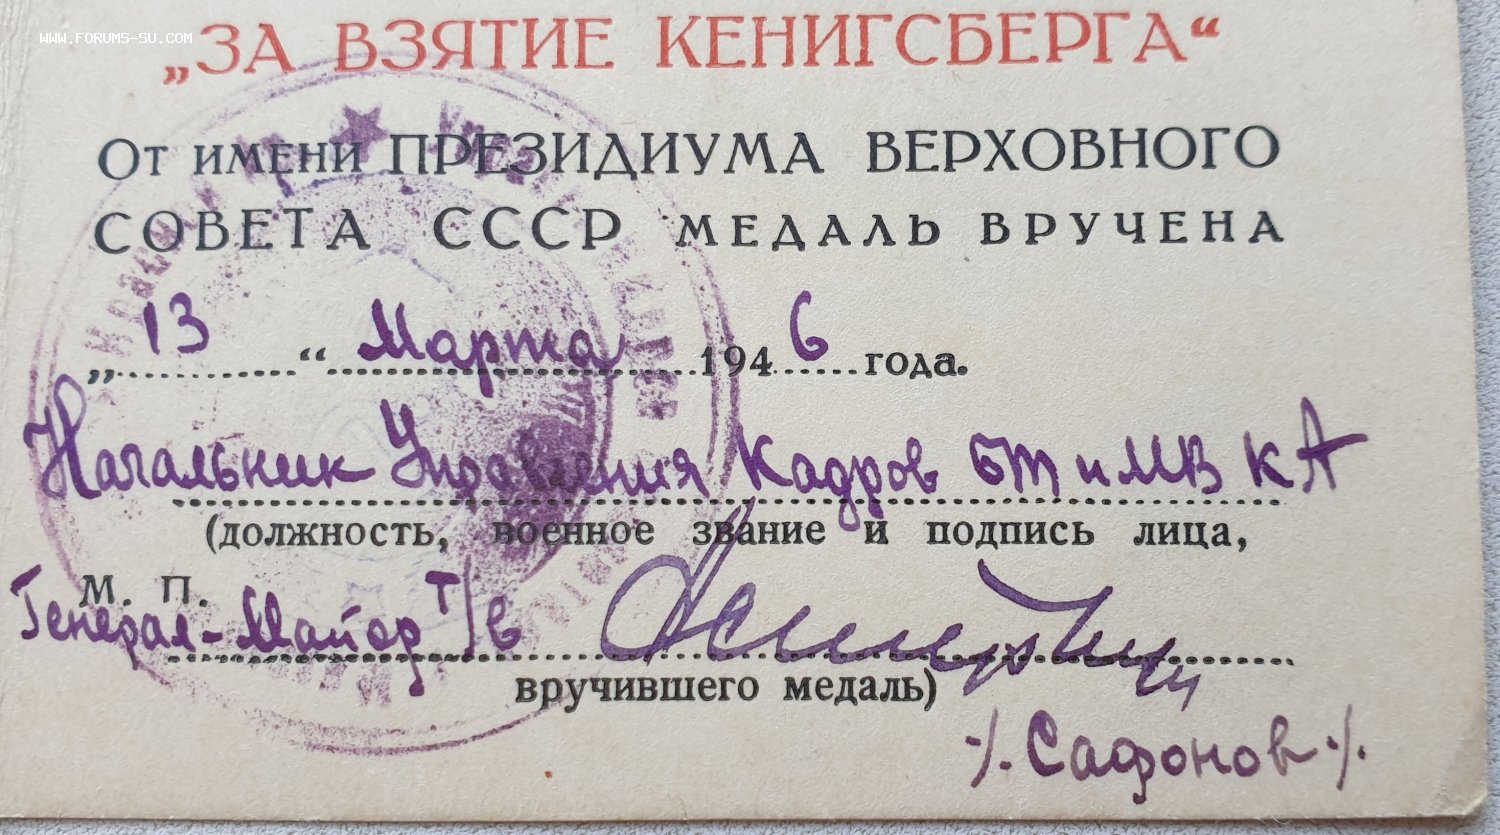 WWW.FORUMS-SU.COM
„ЗА ВЗЯТИЕ КЕНИГСБЕРГА“
От имени ПРЕЗИДИУМА ВЕРХОВНОГО
СОВЕТА СССР МЕДАЛЬ ВРУЧЕНА
„13“ Марта 1946 года.
Начальник Управления Кадров БТ и МВ КА
(должность, военное звание и подпись лица,
М. П.
Генерал-Майор т/в
вручившего медаль)
/Сафонов/